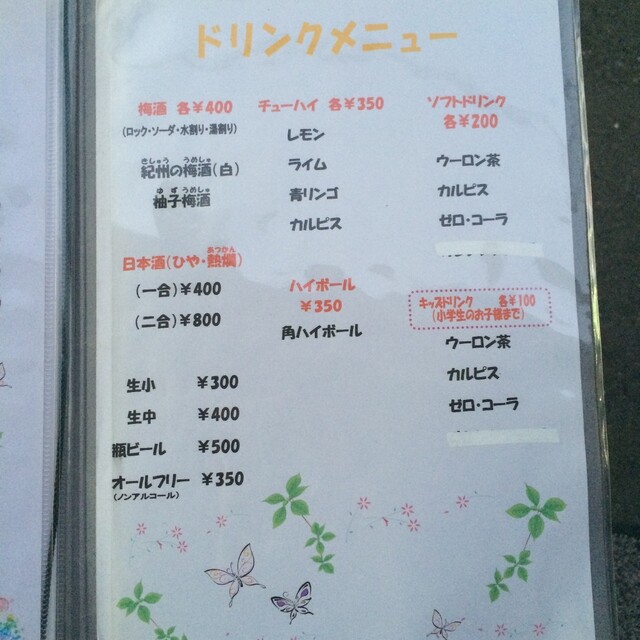 ドリンクメニュー
梅酒 各¥400
(ロック・ソーダ・水割り・湯割り)
きしゅう うめしゅ
紀州の梅酒(白)
ゆず うめしゅ
柚子梅酒
日本酒(ひや・熱燗)
あつかん
(一合)¥400
(二合)¥800
生小 ¥300
生中 ¥400
瓶ビール ¥500
オールフリー ¥350
(ノンアルコール)
チューハイ 各¥350
レモン
ライム
青リンゴ
カルピス
ハイボール
¥350
角ハイボール
ソフトドリンク
各¥200
ウーロン茶
カルピス
ゼロ・コーラ
キッズドリンク 各¥100
(小学生のお子様まで)
ウーロン茶
カルピス
ゼロ・コーラ